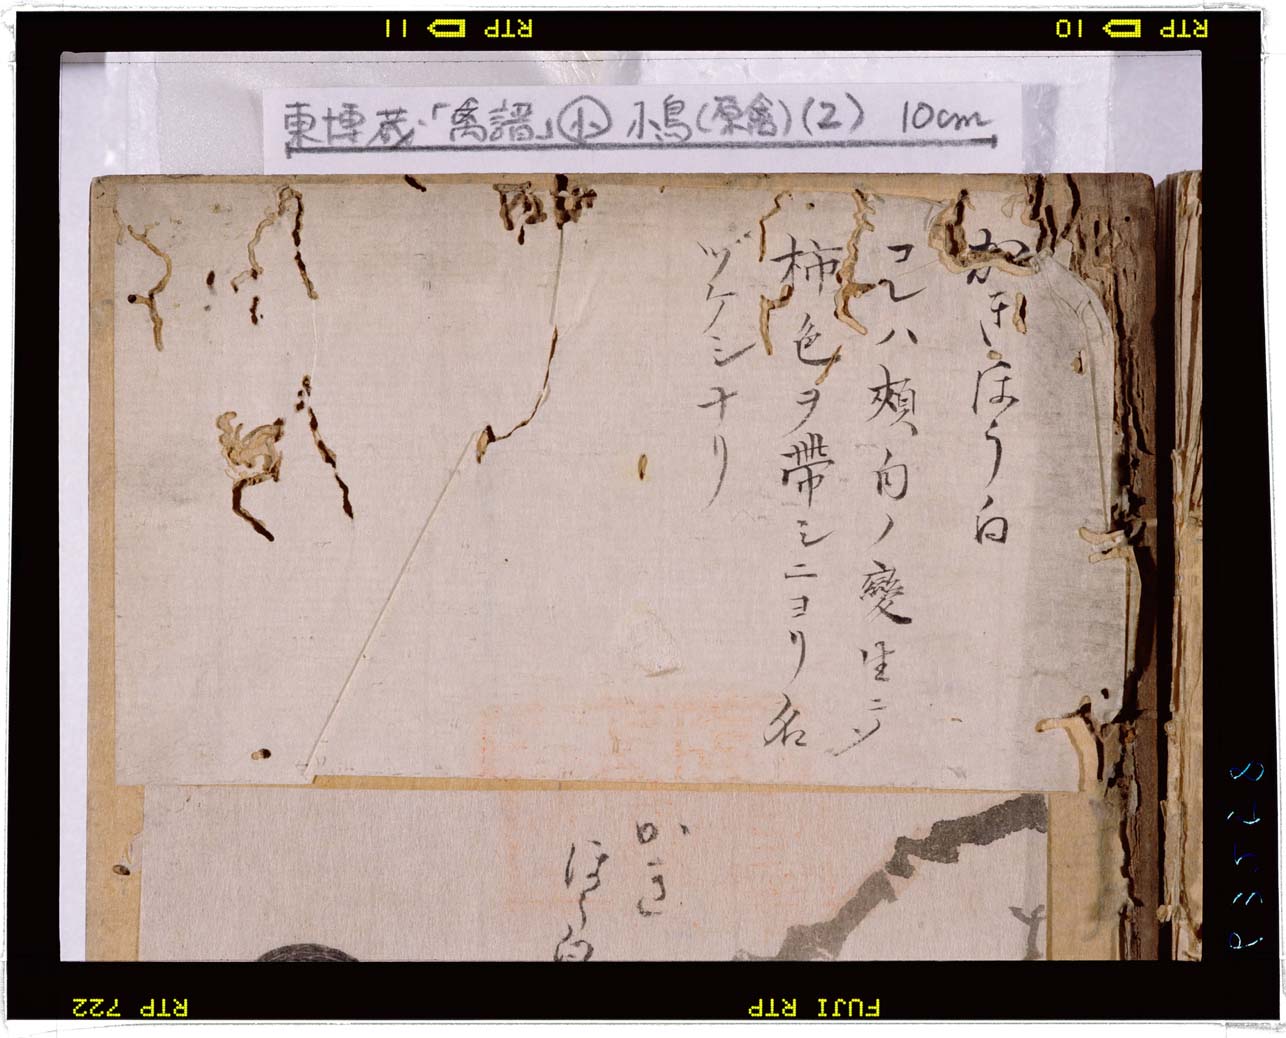 RTP 11
RTP 10
東博蔵・「禽譜」㊉小鳥(原禽)(2) 10cm
かきほう白
コレハ頬白ノ變生ニテ
柿色ヲ帶シニヨリ名
ヅケシナリ
かき
ほう白
RTP 722
FUJI RTP